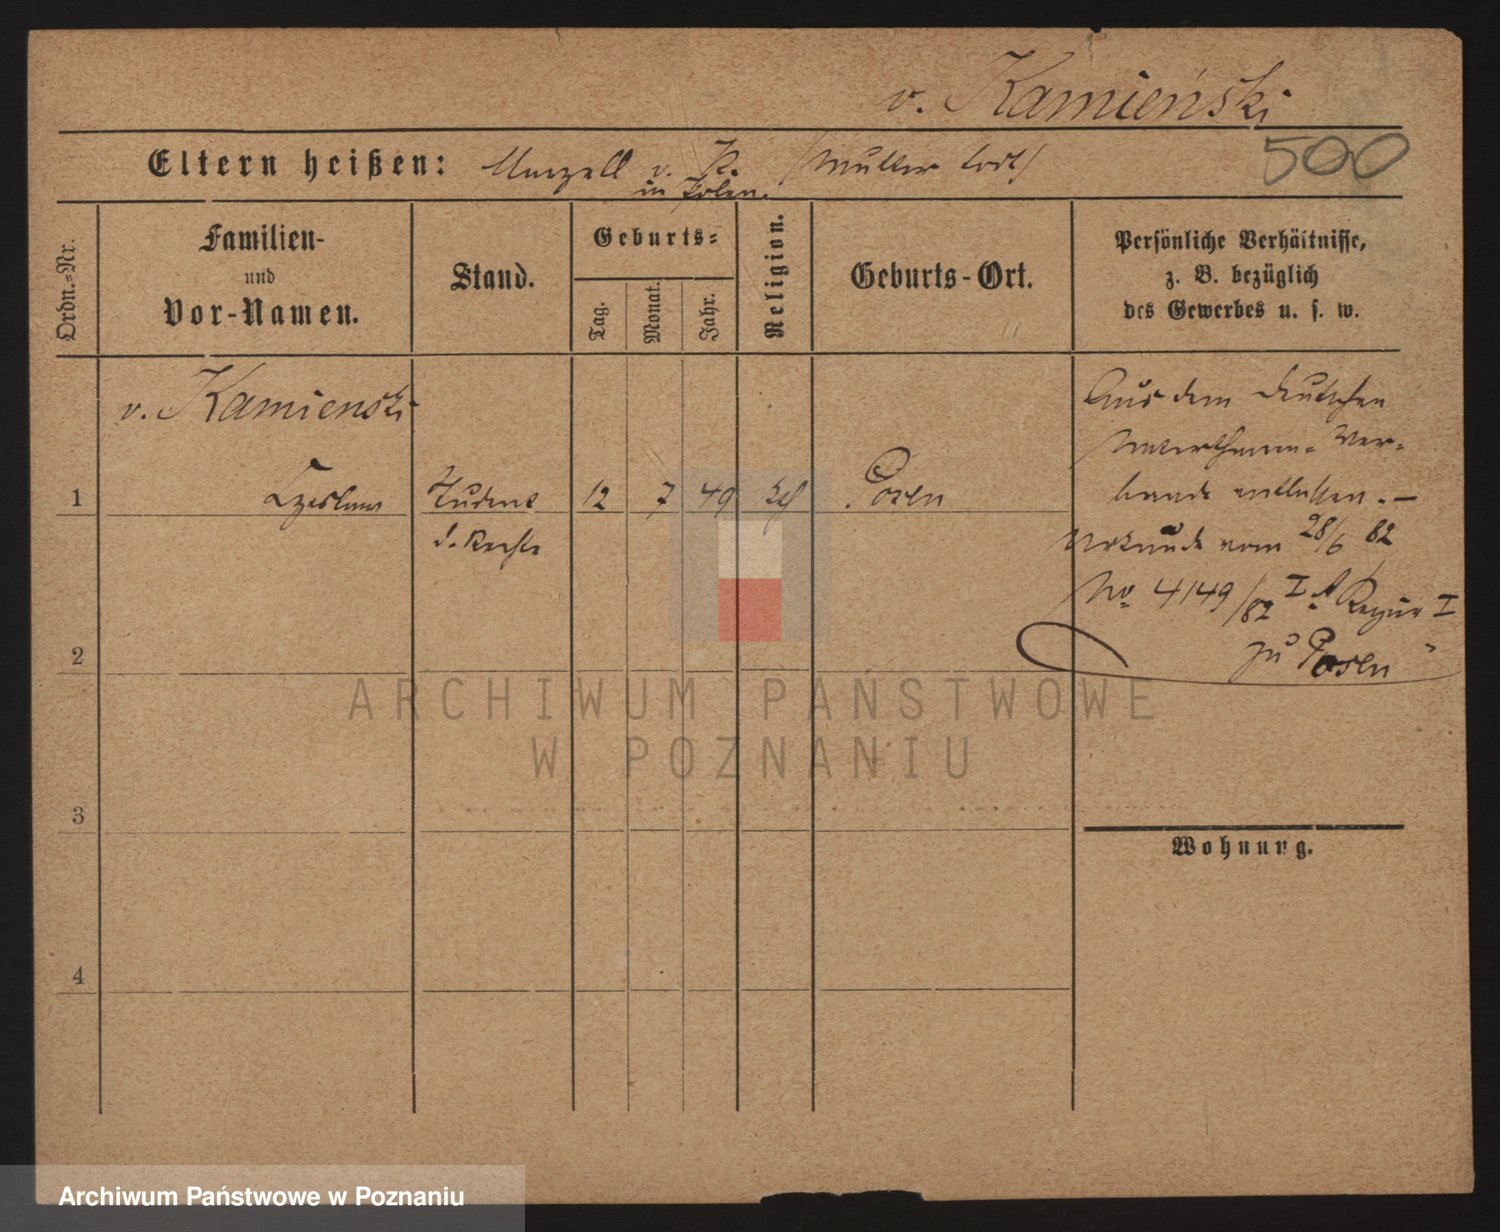 v. Kamieński
500
Eltern heißen: Marzell v. K. (Mutter todt)
in Polen.
Ordn.-Nr.
Familien-
und
Vor-Namen.
Stand.
Geburts-
Tag.
Monat.
Jahr.
Religion.
Geburts-Ort.
Persönliche Verhältnisse,
z. B. bezüglich
des Gewerbes u. s. w.
v. Kamienski
1 Czeslaus Student 12 7 49 kth Posen
d. Rechte
Aus dem Deutschen
Unterthanen-Ver-
bande entlassen. —
Urkunde vom 28/6 82
No 4149/82 I A Regier I
zu Posen
2
3
4
Wohnung.
ARCHIWUM PAŃSTWOWE
W POZNANIU
Archiwum Państwowe w Poznaniu